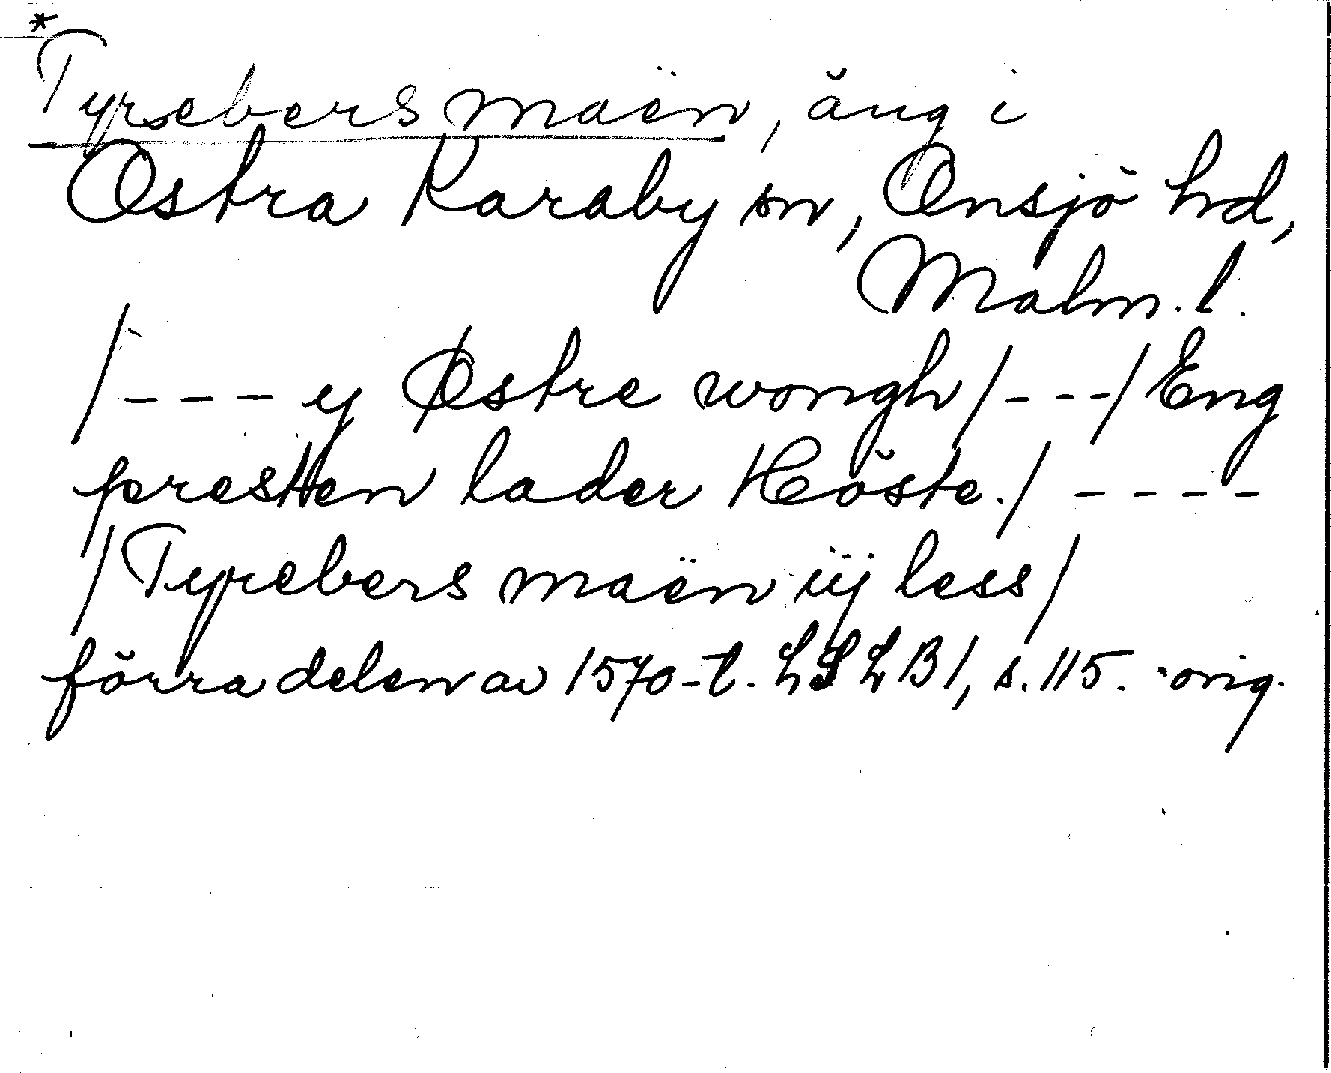 *
Tyrebers maën, äng i
Östra Karaby sn, Onsjö hd,
Malm. l.
/ - - - y Østre wongh / - - - / Eng
presten lader Höste. / - - - -
/ Tyrebers maën iij less /
förra delen av 1570-t. LSLB 1, s. 115. orig.